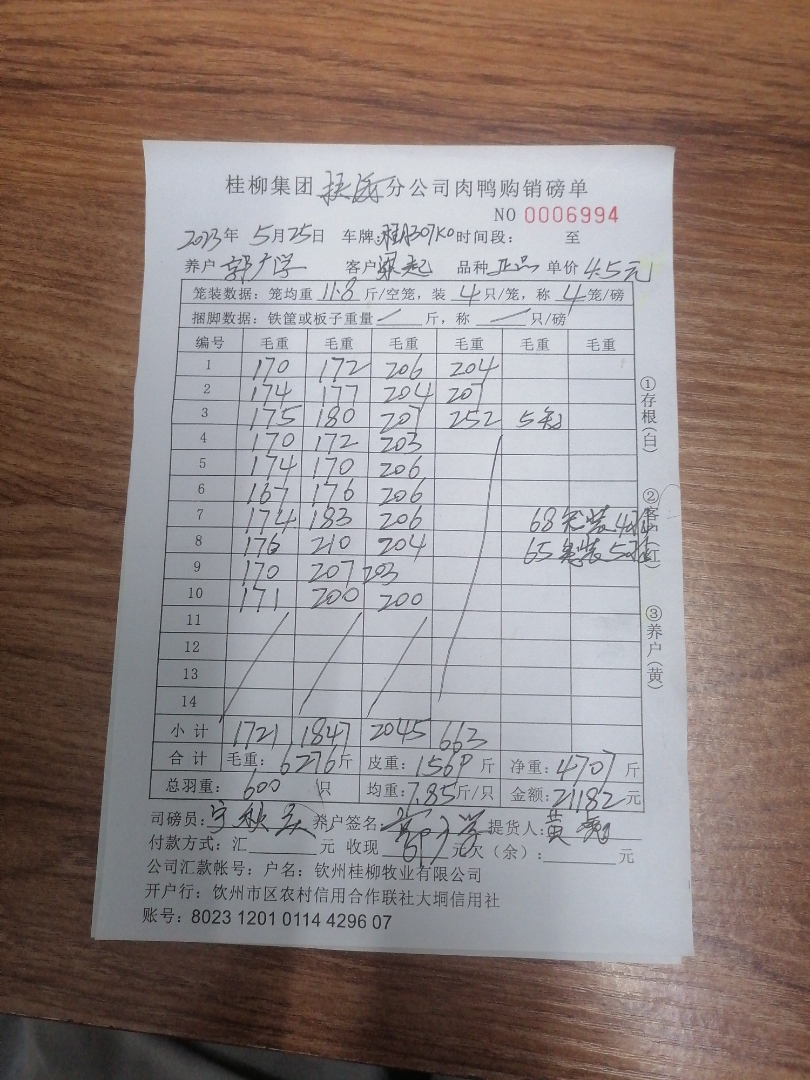 桂柳集团 分公司肉鸭购销磅单
NO 0006994
2023年 5月25日 车牌: 307K0 时间段: 至
养户 郭广学 客户 梁起 品种 正品 单价 4.5元
笼装数据: 笼均重 11.8 斤/空笼, 装 4 只/笼, 称 4 笼/磅
捆脚数据: 铁筐或板子重量 / 斤, 称 / 只/磅
编号 毛重 毛重 毛重 毛重 毛重 毛重
1 170 172 206 204
2 174 177 204 207
3 175 180 207 252 5笼
4 170 172 203
5 174 170 206
6 167 176 206
7 174 183 206 68笼装4只
8 176 210 204 65笼装5只
9 170 207 203
10 171 200 200
11
12
13
14
小计 1721 1847 2045 663
合计 毛重: 6276斤 皮重: 1569斤 净重: 4707斤
总羽重: 600 只 均重: 7.85斤/只 金额: 21182元
司磅员: 养户签名: 提货人: 黄
付款方式: 汇 元 收现 元欠(余): 元
公司汇款帐号: 户名: 钦州桂柳牧业有限公司
开户行: 钦州市区农村信用合作联社大垌信用社
账号: 8023 1201 0114 4296 07
①存根(白)
②客户(红)
③养户(黄)